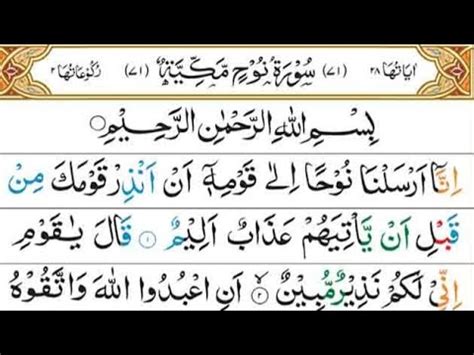 اٰیَاتُهَا ٢٨ (٧١) سُوْرَةُ نُوْحٍ مَّكِّيَّةٌ (٧١) رُكُوْعَاتُهَا ٢
بِسْمِ اللهِ الرَّحْمٰنِ الرَّحِيْمِ
اِنَّاۤ اَرْسَلْنَا نُوْحًا اِلٰى قَوْمِهٖۤ اَنْ اَنْذِرْ قَوْمَكَ مِنْ
قَبْلِ اَنْ يَّاْتِيَهُمْ عَذَابٌ اَلِيْمٌ ١ قَالَ يٰقَوْمِ
اِنِّيْ لَكُمْ نَذِيْرٌ مُّبِيْنٌ ٢ اَنِ اعْبُدُوا اللهَ وَاتَّقُوْهُ